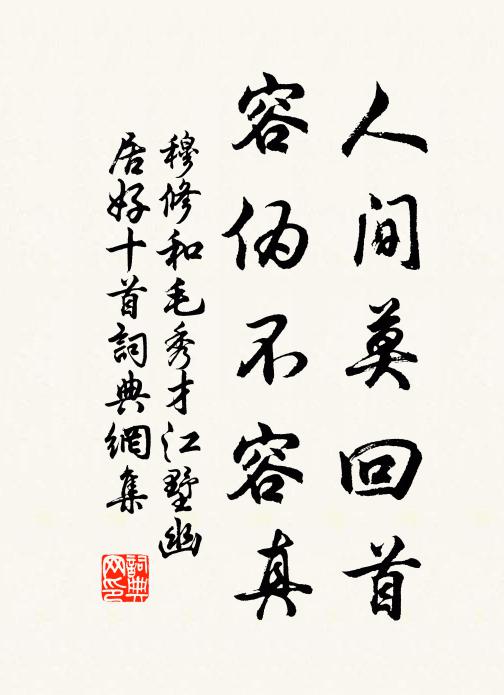 人间莫回首
容伪不容真
穆修和毛秀才江墅幽
居好十首詞典網集
詞典
网印